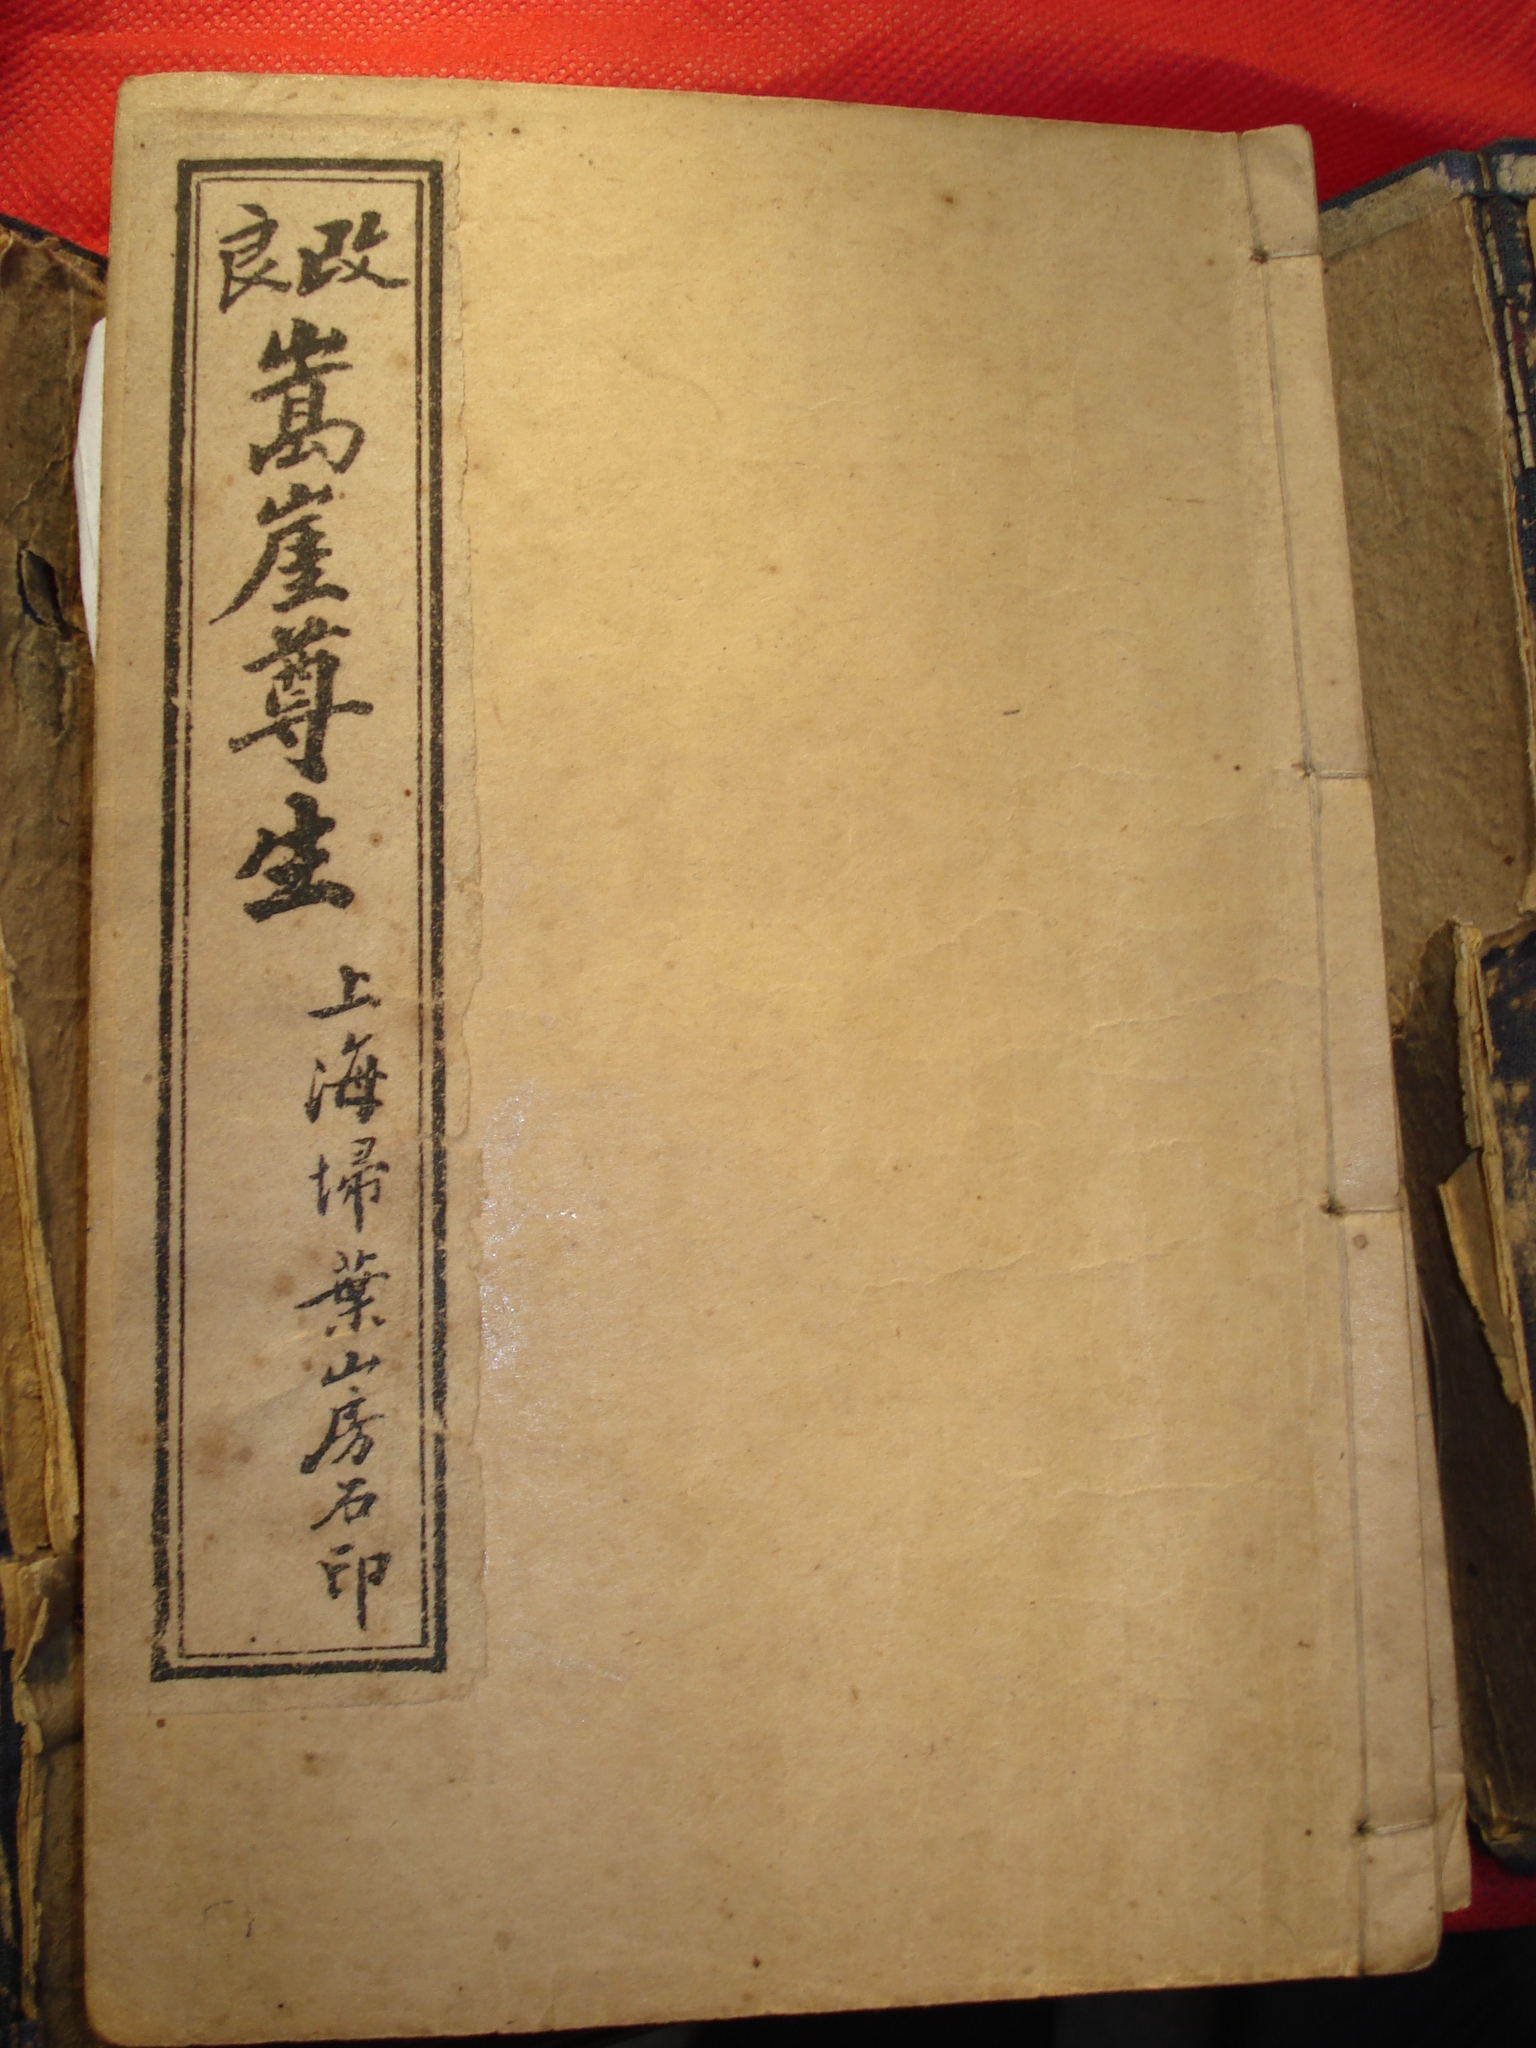 改良
嵩崖尊生
上海埽葉山房石印